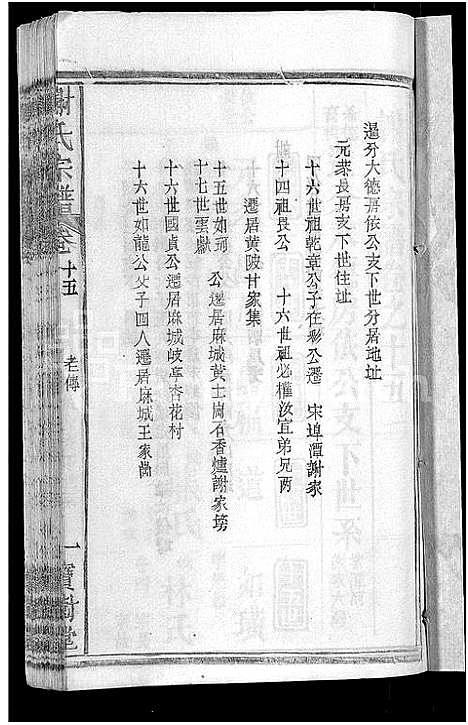 遜分大德房依公支下世分居地址
元荣畏房支下世住址
十六世祖乾章公子在彩公遷 宋埠潭謝家
十四祖畏公 十六世祖必權汝宜弟兄兩
遷居黄陂甘家集
十五世如珂 公遷居麻城黄土崗石香爐謝家塝
十七世雲獻
十六世國貞公遷居麻城歧亭杏花村
十六世如龍公父子四人遷居麻城王家崗
謝氏宗譜 卷十五 老傳 一 寶樹堂